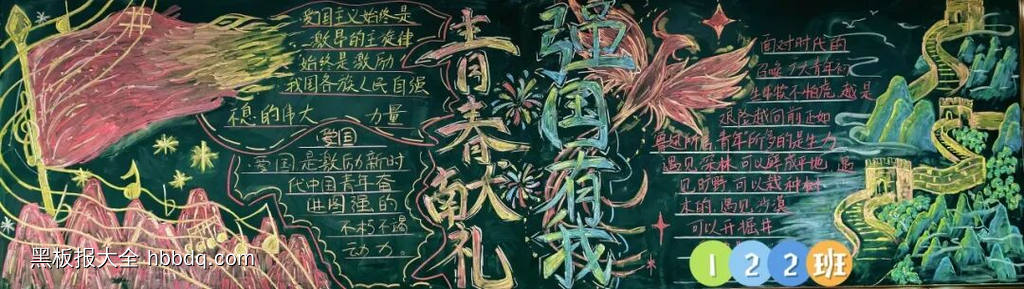 爱国主义始终是
激昂的主旋律
始终是激励
我国各族人民自强
息的伟大 力量
爱国
爱国是激励新时
代中国青年奋
进图强的
不朽不竭
动力。
青春献礼
强国有我
面对时代的
召唤 广大青年初
生牛犊不怕虎 越是
艰险越向前 正如
鲁迅所言 青年所多的是生力
遇见深林 可以辟成平地 遇
见旷野 可以栽种树
木的 遇见沙漠
可以开掘井
122班
黑板报大全 hbbdq.com